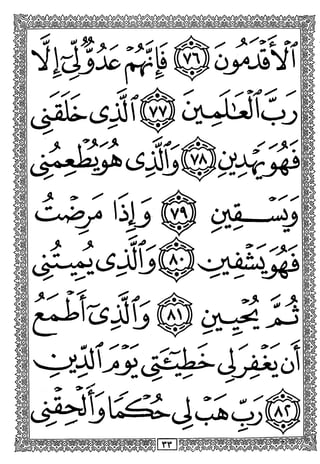 ٱلْأَقْدَمُونَ ٧٦ فَإِنَّهُمْ عَدُوٌّ لِّىٓ إِلَّا
رَبَّ ٱلْعَـٰلَمِينَ ٧٧ ٱلَّذِى خَلَقَنِى
فَهُوَ يَهْدِينِ ٧٨ وَٱلَّذِى هُوَ يُطْعِمُنِى
وَيَسْقِينِ ٧٩ وَإِذَا مَرِضْتُ
فَهُوَ يَشْفِينِ ٨٠ وَٱلَّذِى يُمِيتُنِى
ثُمَّ يُحْيِينِ ٨١ وَٱلَّذِىٓ أَطْمَعُ
أَن يَغْفِرَ لِى خَطِيٓـَٔتِى يَوْمَ ٱلدِّينِ
٨٢ رَبِّ هَبْ لِى حُكْمًا وَأَلْحِقْنِى
٣٣